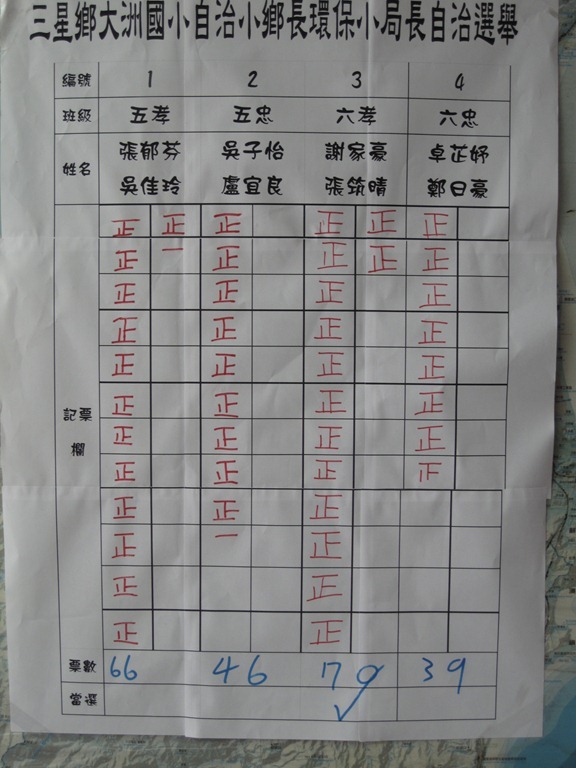 三星鄉大洲國小自治小鄉長環保小局長自治選舉
編號 1 2 3 4
班級 五孝 五忠 六孝 六忠
姓名 張郁芬 吳子怡 謝家豪 卓芷妤
吳佳玲 盧宜良 張筑晴 鄭日豪
正 正 正 正 正 正
正 一 正 正 正 正
正 正 正 正
正 正 正 正
正 正 正 正
記票欄 正 正 正 正
正 正 正 正
正 正 正 正
正 正 正
正 一 正
正 正
正 正
票數 66 46 70 39
當選 ✓